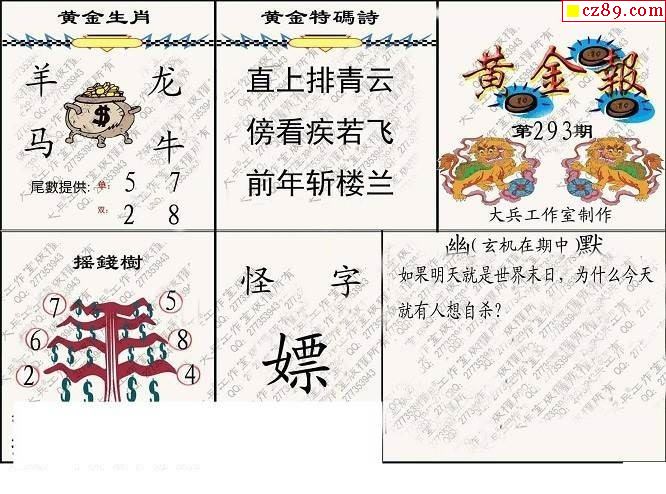 cz89.com
黄金生肖
羊 龙
$
马 牛
尾數提供: 单: 5 7
双: 2 8
黄金特碼詩
直上排青云
傍看疾若飞
前年斩楼兰
黄金報
第293期
大兵工作室制作
摇錢樹
7 5
6 8
2 4
怪 字
嫖
幽(玄机在期中)默
如果明天就是世界末日，为什么今天
就有人想自杀?